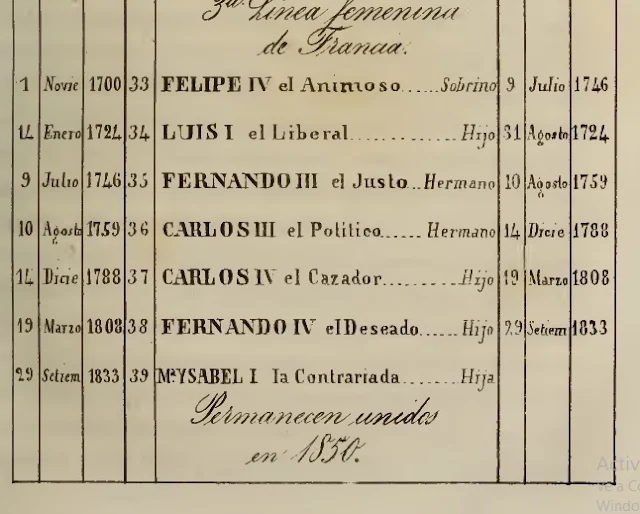 3ª Línea femenina
de Francia.
1 Novie 1700 33 FELIPE IV el Animoso......Sobrino 9 Julio 1746
14 Enero 1724 34 LUIS I el Liberal..............Hijo 31 Agosto 1724
9 Julio 1746 35 FERNANDO III el Justo..Hermano 10 Agosto 1759
10 Agosto 1759 36 CARLOS III el Político......Hermano 14 Dicie 1788
14 Dicie 1788 37 CARLOS IV el Cazador...........Hijo 19 Marzo 1808
19 Marzo 1808 38 FERNANDO IV el Deseado......Hijo 29 Setiem 1833
29 Setiem 1833 39 Mª YSABEL I la Contrariada........Hija
Permanecen unidos
en 1850.